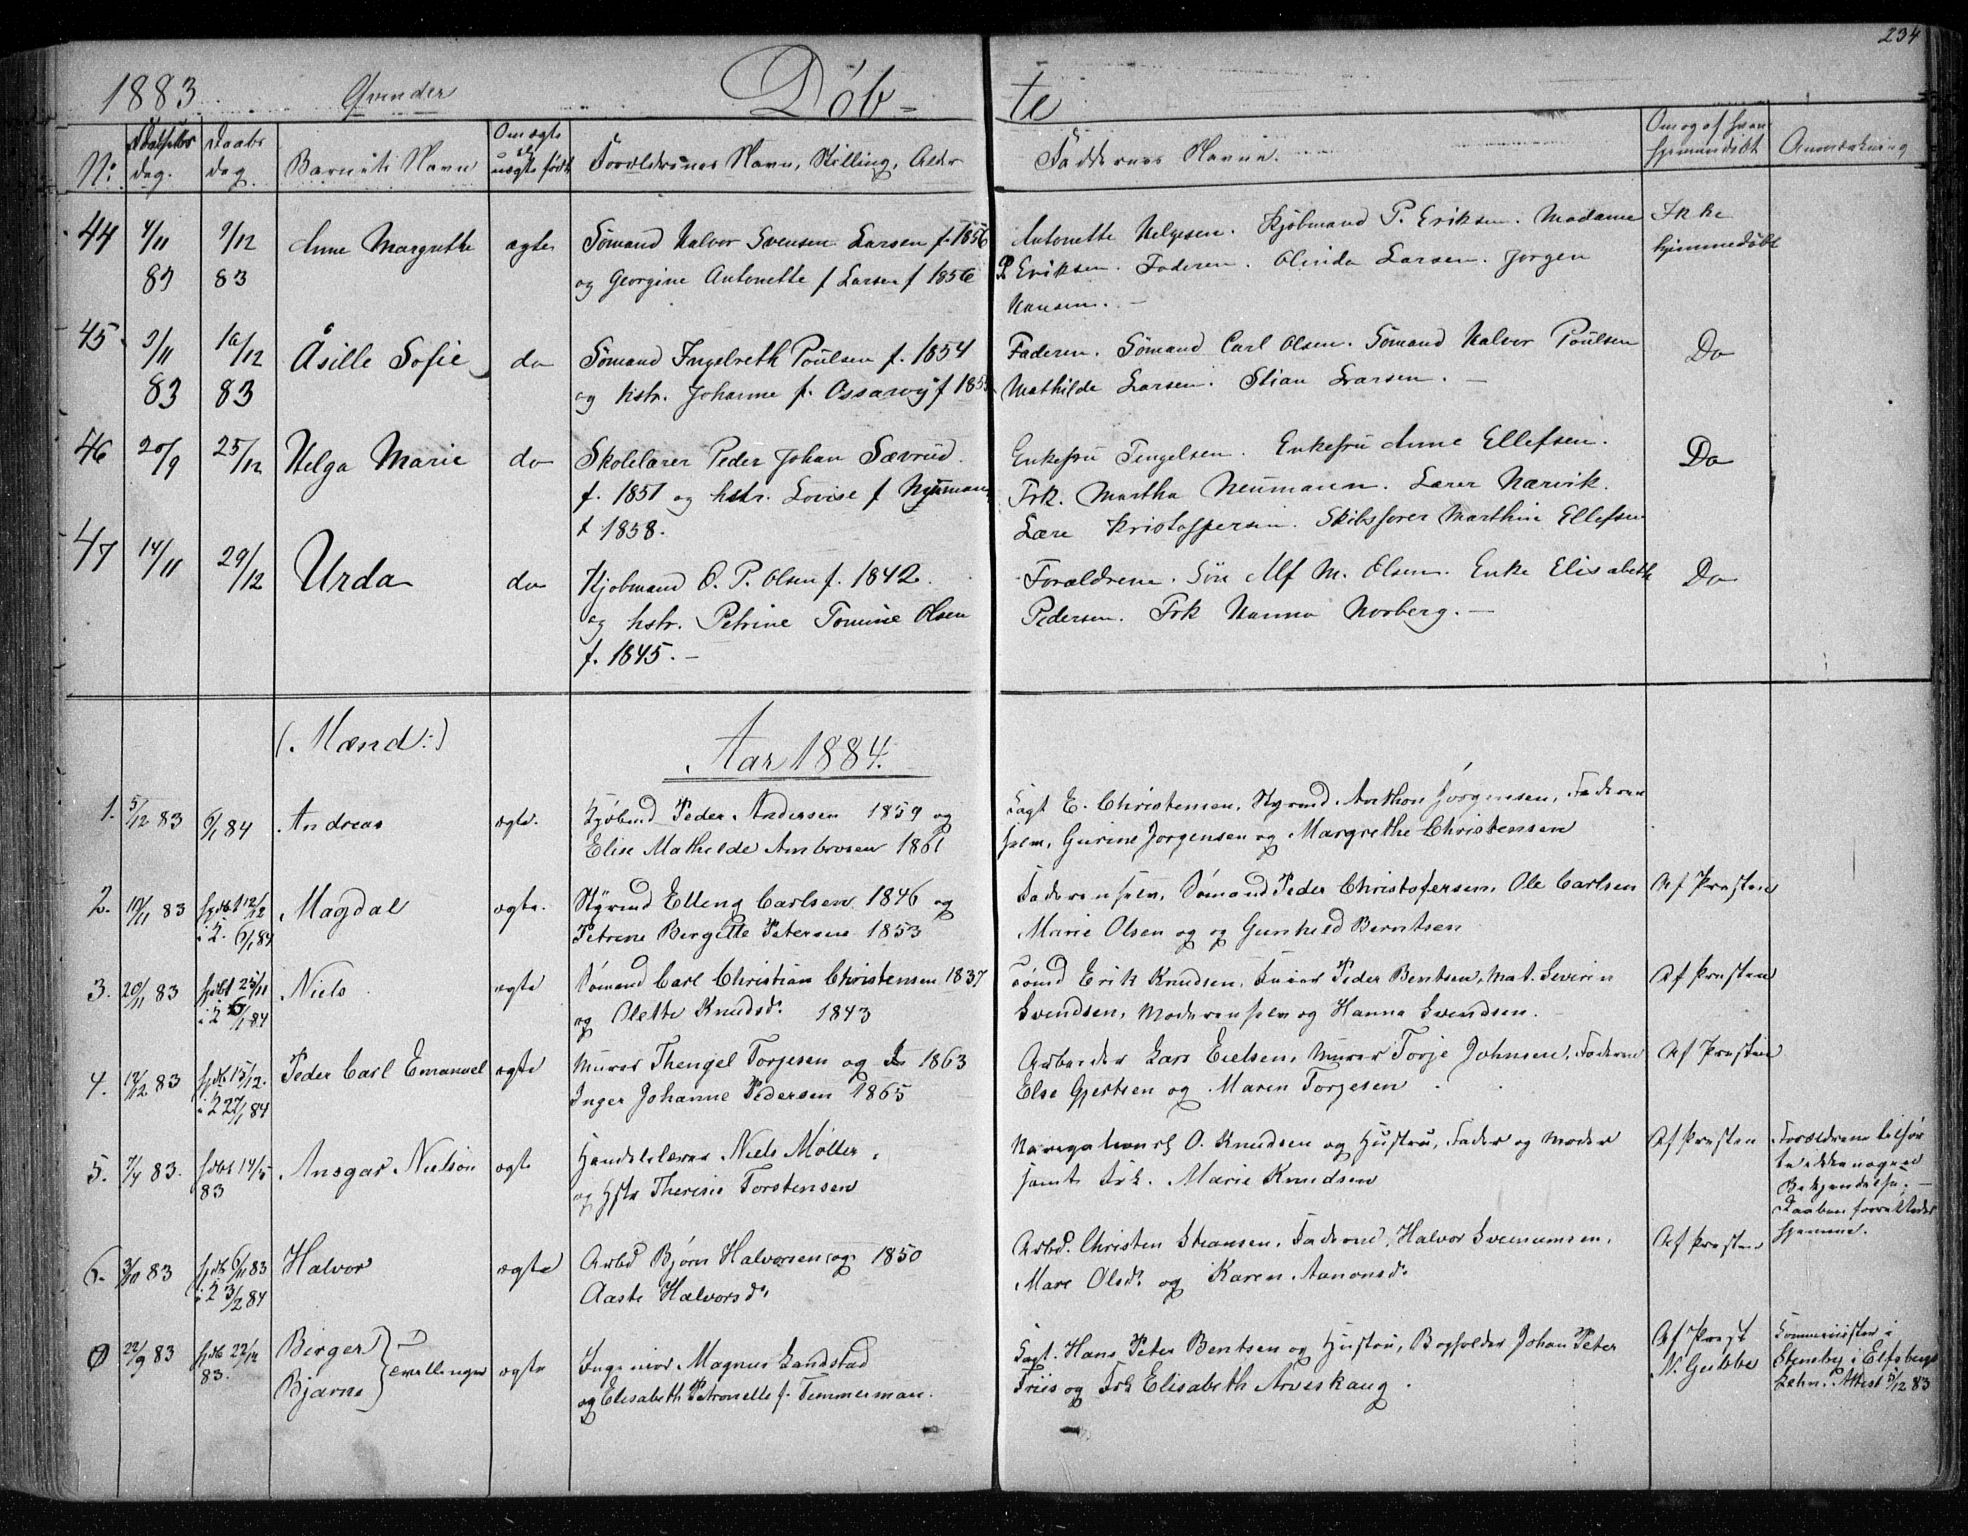 234
1883 Qvinder Døb- te
N: Fødsels dag. Daabs dag Barnets Navn Om ægte el. uægte født Forældrenes Navn, Stilling, Alder Faddernes Navne. Om og af hvem hjemmedøbt Anmærkning
44 4/11 83 9/12 83 Anne Margrethe ægte
Sømand Halvor Svensen Larsen f. 1856
og Georgine Antonette f Larsen f 1856
Antonette Helgesen. Kjøbmand P. Eriksen. Madame
P. Eriksen. Faderen. Olinda Larsen. Jørgen
Hansen. —
Ikke
hjemmedøbt
45 3/11 83 16/12 83 Åsille Sofie do
Sømand Ingelreth Poulsen f. 1854
og hstr. Johanne f. Ossarøy f 185
Faderen. Sømand Carl Olsen. Sømand Halvor Poulsen
Mathilde Larsen. Stian Larsen. —
Do
46 20/9 25/12 Helga Marie do
Skolelærer Peder Johan Sævrud.
f. 1851 og hstr. Lovise f Nyman
f 1858.
Enkefru Tengelsen. Enkefru Anne Ellefsen.
Frk. Martha Neumann. Lærer Nærvik.
Lære Kristoffersen. Skibsfører Marthin Ellefsen
Do
47 14/11 29/12 Urda do
Kjøbmand O. P. Olsen f. 1842.
og hstr. Petrine Tomine Olsen
f. 1845. —
Forældrene. Søn Alf M. Olsen. Enke Elisabeth
Pedersen. Frk Hanna Norberg. —
Do
(Mænd:) Aar 1884.
1. 5/12 83 6/1 84 Andreas ægte.
Kjøbmd Peder Andersen 1859 og
Elise Mathilde Ambrosen 1861
Capt E. Christensen, Styrmd Anthon Jørgensen, Faderen
selv, Gurine Jørgensen og Margrethe Christensen
2. 10/11 83 hjdbt 12/12 i 2. 6/1 84 Magdal ægte.
Styrmd Elleng Carlsen 1846 og
Petrine Bergitte Petersen 1853
Faderen selv, Sømand Peder Christofersen, Ole Carlsen
Marie Olsen og og Gunhild Berntsen
Af Præsten
3. 20/11 83 hjdbt 25/11 i 2 6/1 84 Niels ægte
Sømand Carl Christian Christensen 1837
og Olette Knudsd. 1843
Sømd Erik Knudsen, Peder Bentsen, Mat. Severin
Svendsen, Moderen selv og Hanna Svendsen.
Af Præsten
4. 12/12 83 hjdb 15/12. i 2 27/1 84 Peder Carl Emanuel ægte
Murer Thengel Torjesen og 1863
Inger Johanne Pedersen 1865
Arbeider Lars Eielsen, Murer Torje Johnsen, Faderen
Else Gjertsen og Maren Torjesen
Af Præsten
5. 7/4 83. hjdbt 14/5 83 Ansgar Nielson ægte
Handelslærer Niels Møller,
og Hstr Theresie Torstensen
Navigationsl O. Knudsen og Hustru, Fader og Moder
samt Frk. Marie Knudsen
Af Præsten
Forældrene tilhør
te ikke nogen
Bekjendelse. —
Daaben forrettedes
hjemme.
6. 3/10 83 hjdb 6/11 83 i 2 3/2 84 Halvor ægte
Arbd Bjørn Halvorsen og 1850
Aaste Halvorsd.
Arbd. Christen Steansen, Faderen, Halvor Svenumsen,
Mare Olsd. og Karen Aanonsd.
Af Præsten
0 22/9 83 hjdb 22/12 83. Birger
Bjarne } Tvillinger ægte
Ingeniør Magnus Landstad
og Elisabeth Petronelle f. Timmerman.
Capt. Hans Peter Bentsen og Hustru, Bogholder Johan Peter
Friis og Frk Elisabeth Arveskaug.
Af Præst
N. Gubbe
Komminister i
Stensby i Elfsborgs
Lehn. Attest 5/12 83